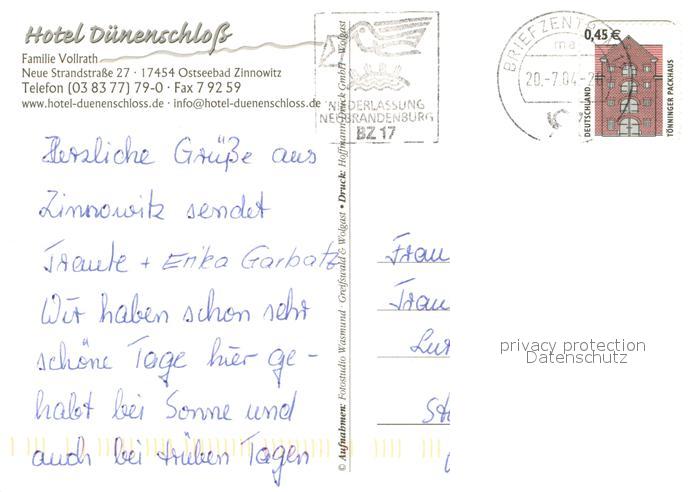 Hotel Dünenschloß
Familie Vollrath
Neue Strandstraße 27 · 17454 Ostseebad Zinnowitz
Telefon (03 83 77) 79-0 · Fax 7 92 59
www.hotel-duenenschloss.de · info@hotel-duenenschloss.de
NIEDERLASSUNG
NEUBRANDENBURG
BZ 17
BRIEFZENTRUM
20.-7.04-
0,45 €
DEUTSCHLAND
TÖNNINGER PACKHAUS
Herzliche Grüße aus
Zinnowitz sendet
Traute + Erika Garbatz
Wir haben schon sehr
schöne Tage hier ge-
habt bei Sonne und
auch bei trüben Tagen
© Aufnahmen: Fotostudio Wasmund · Greifswald & Wolgast • Druck: Hoffmann-Druck GmbH · Wolgast
Frau
Trau
privacy protection
Datenschutz